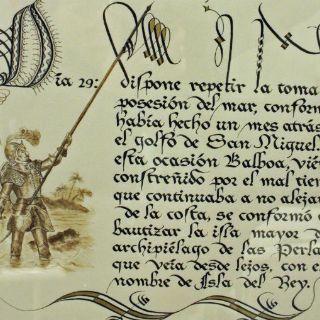 Día 29: dispone repetir la toma
posesión del mar, conform
había hecho un mes atrás
el golfo de San Miguel.
esta ocasión Balboa, vié
constreñido por el mal tiem
que continuaba a no alejar
de la costa, se conformó c
bautizar la isla mayor d
archipiélago de las Perla
que veía desde lejos, con e
nombre de Isla del Rey.